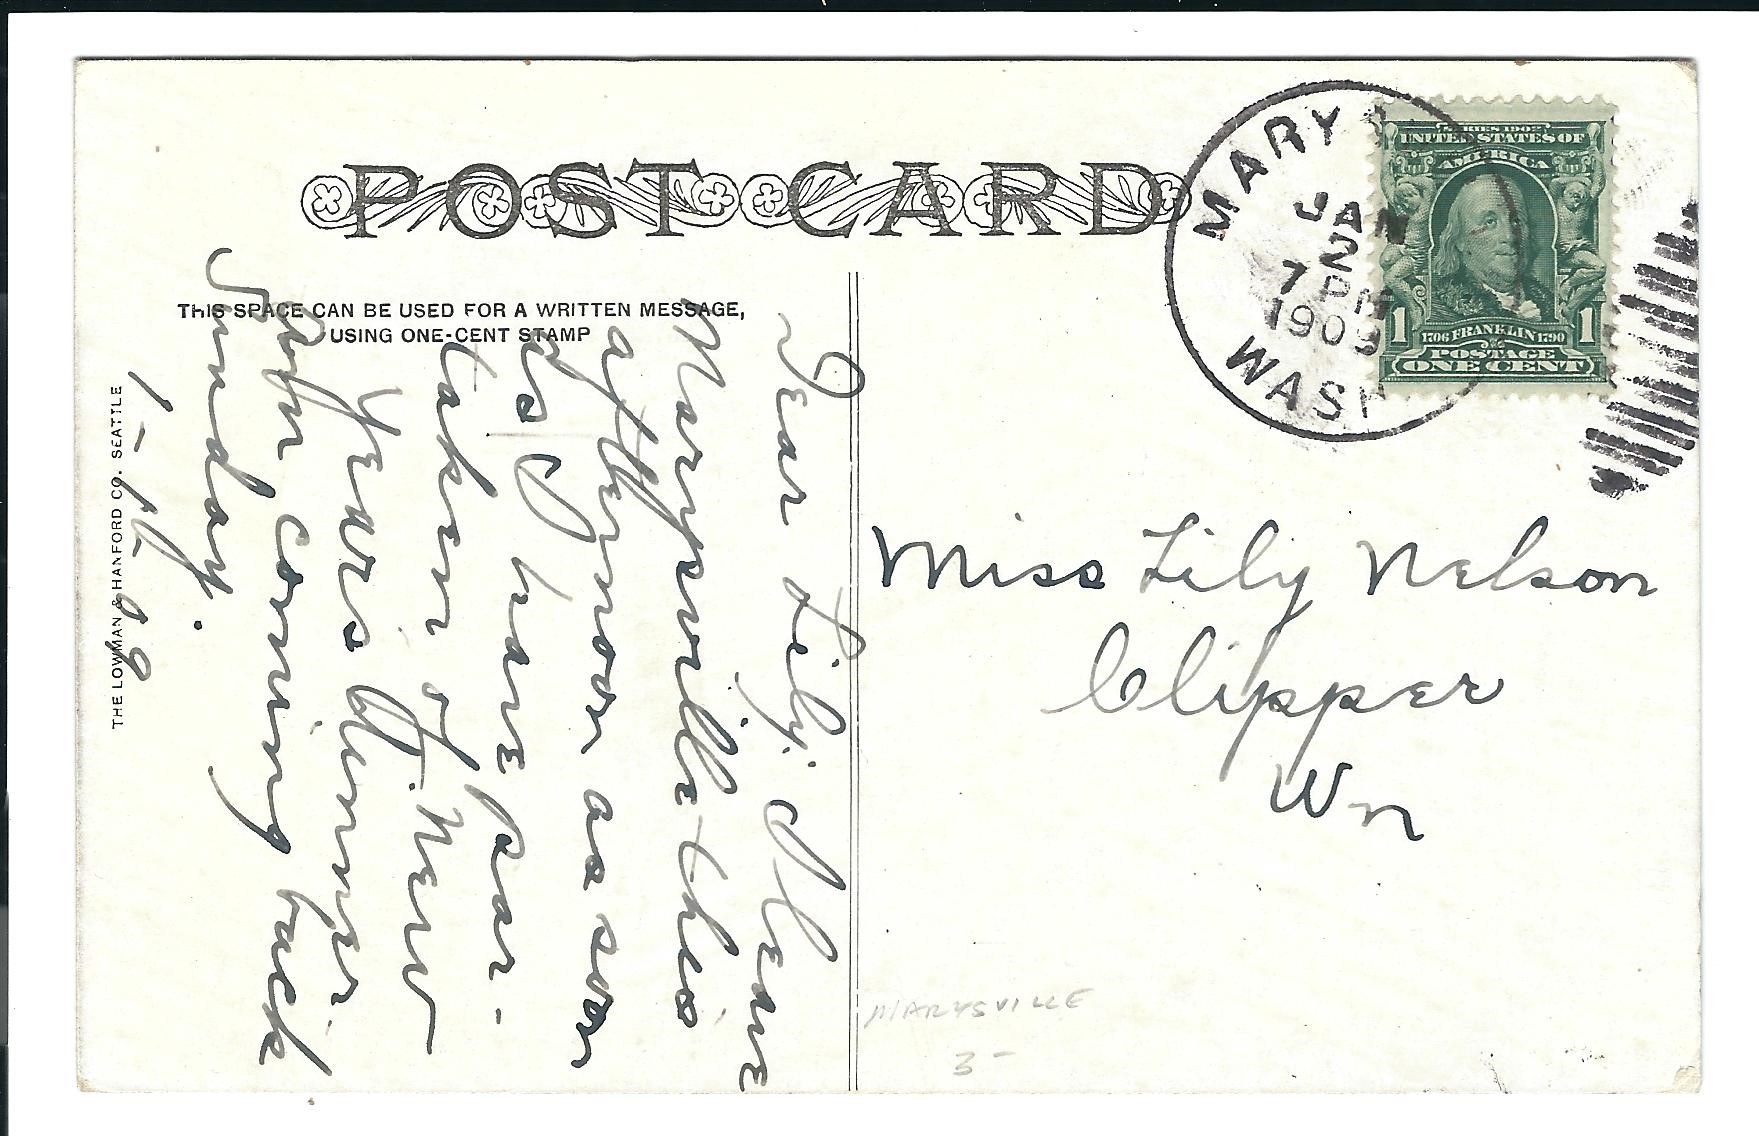 POST CARD
THIS SPACE CAN BE USED FOR A WRITTEN MESSAGE,
USING ONE-CENT STAMP
THE LOWMAN & HANFORD CO. SEATTLE
Dear Lily: I leave
Marysville this
afternoon as soon
as I have par-
taken of New
Years dinner
coming back
Sunday.
MARYS
JAN
2
7 PM
1909
WASH
SERIES 1902
UNITED STATES OF
AMERICA
1 1706 FRANKLIN 1790 1
POSTAGE
ONE CENT
Miss Lily Nelson
Clipper
Wn
MARYSVILLE
3-